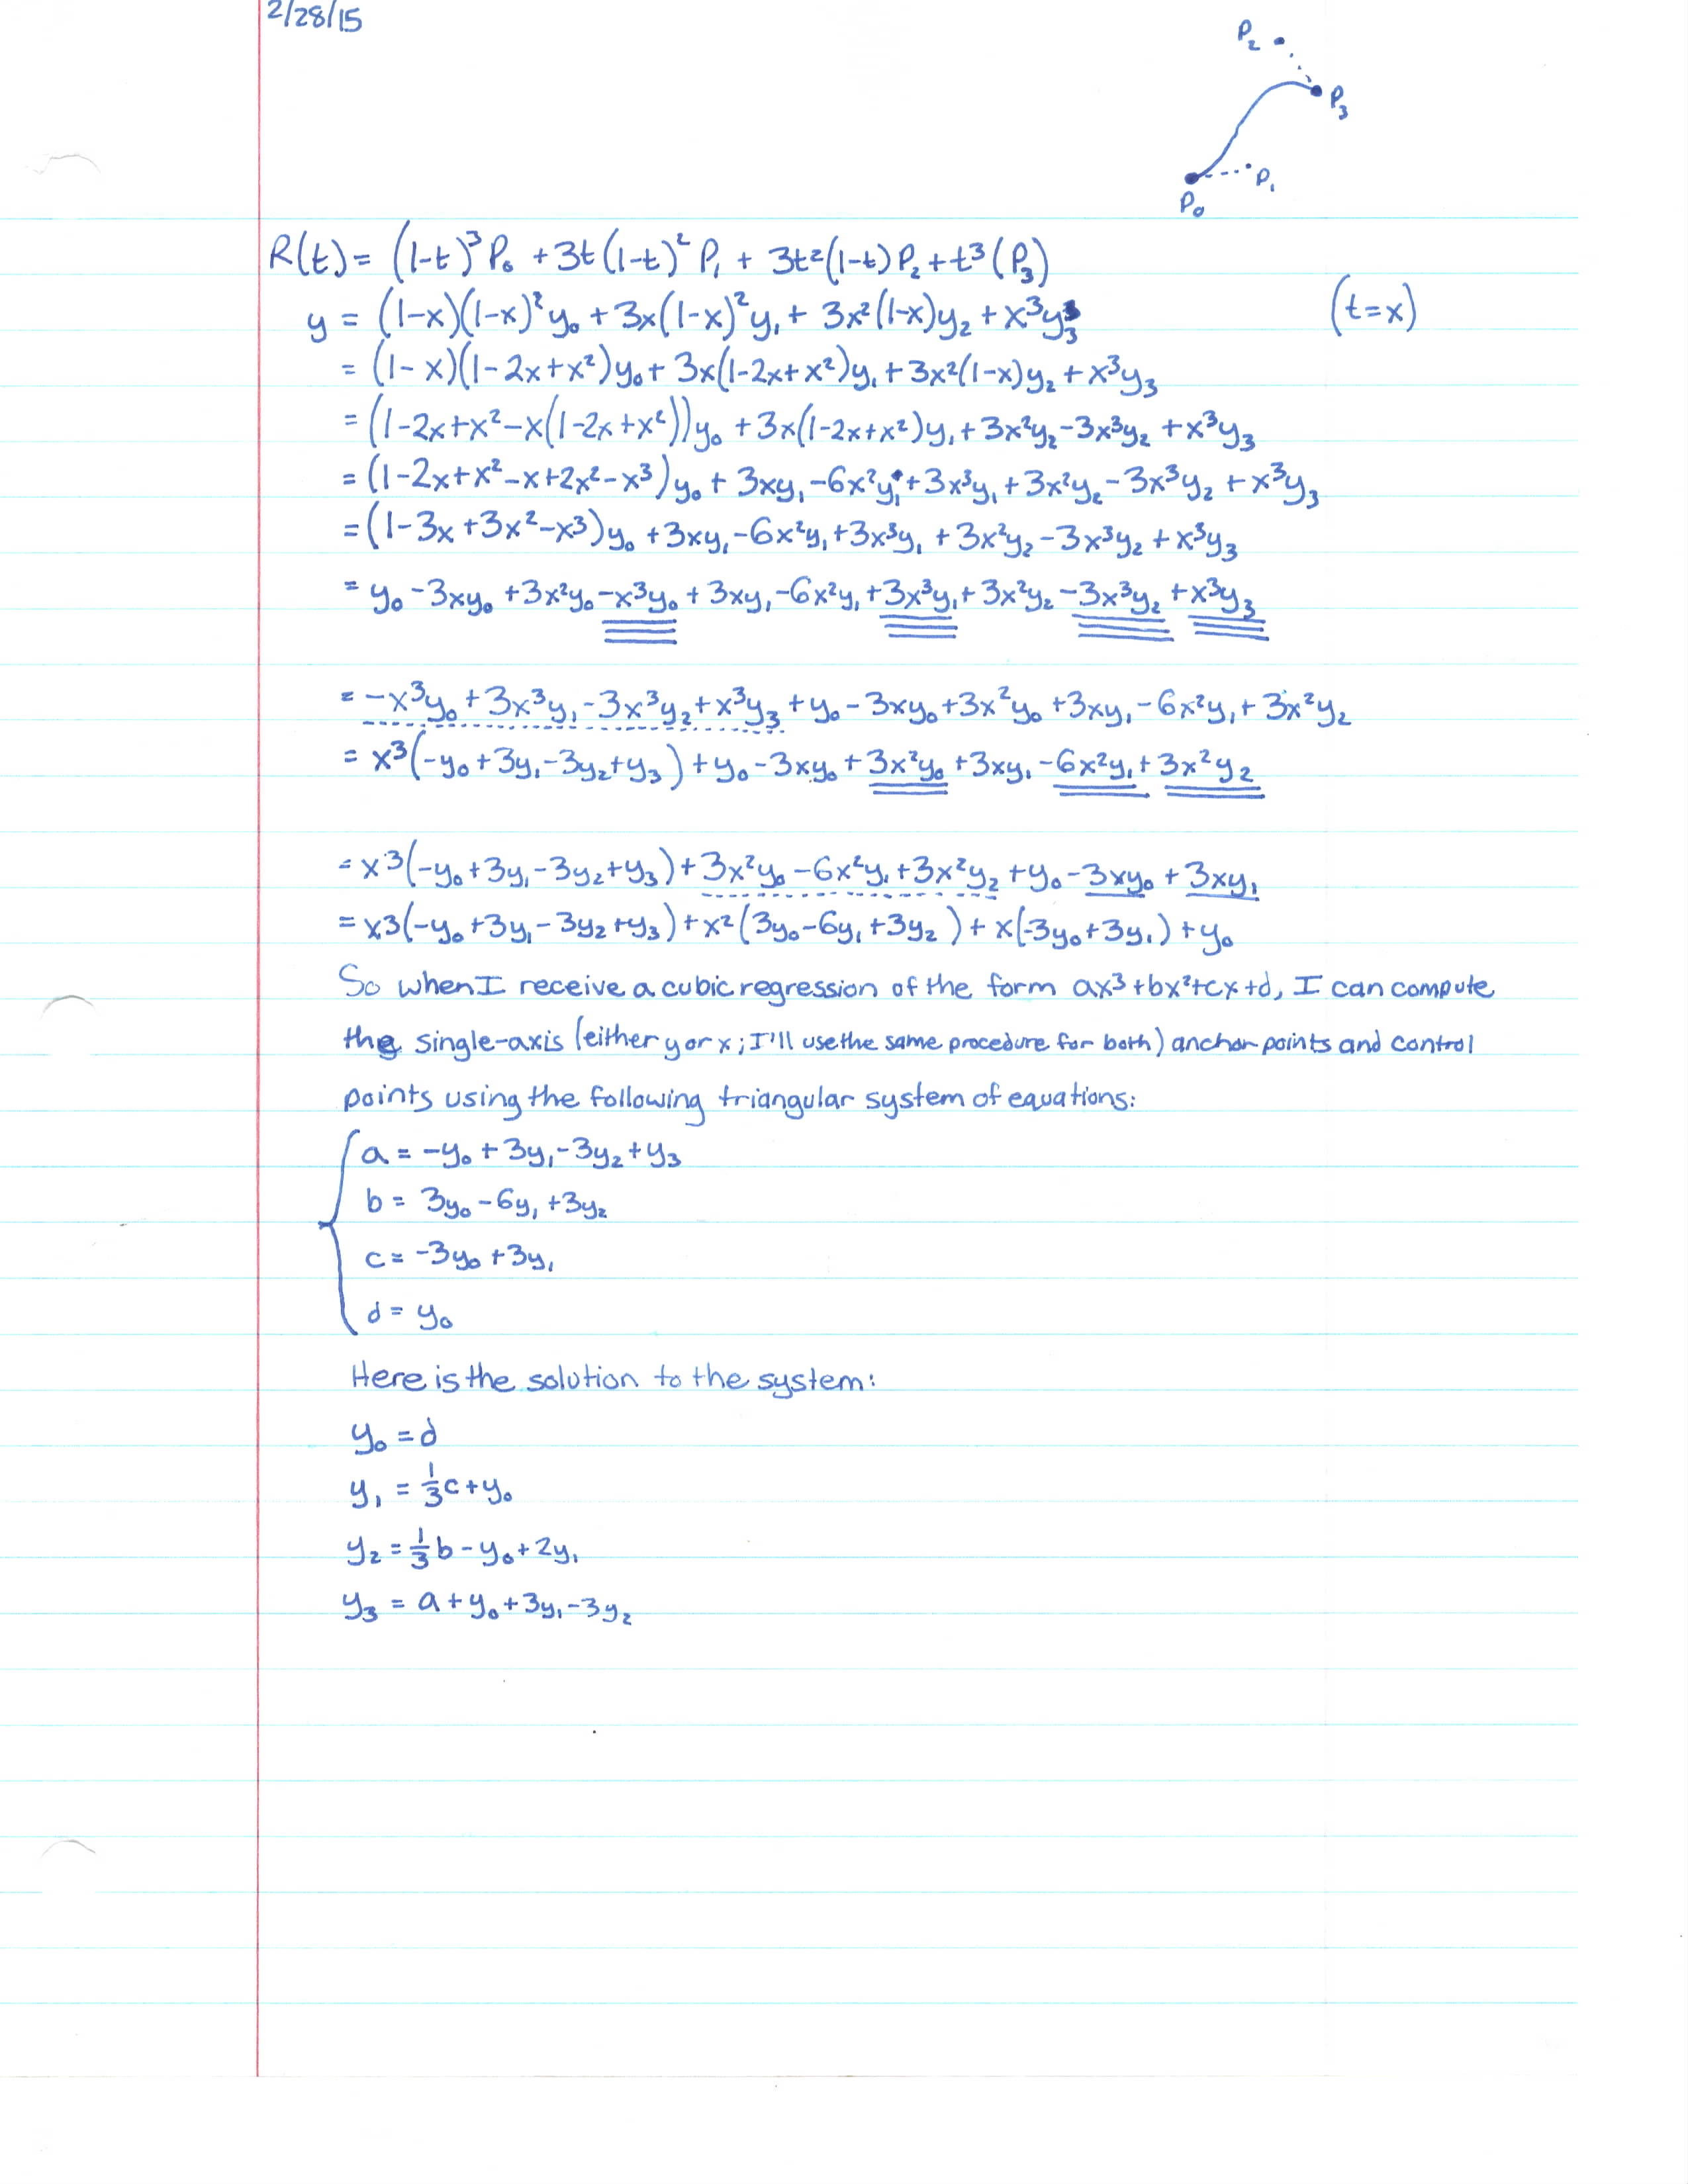 2/28/15
P₂
P₃
P₁
P₀
R(t) = (1-t)³P₀ + 3t(1-t)²P₁ + 3t²(1-t)P₂ + t³(P₃)
y = (1-x)(1-x)²y₀ + 3x(1-x)²y₁ + 3x²(1-x)y₂ + x³y₃ (t=x)
= (1-x)(1-2x+x²)y₀ + 3x(1-2x+x²)y₁ + 3x²(1-x)y₂ + x³y₃
= (1-2x+x²-x(1-2x+x²))y₀ + 3x(1-2x+x²)y₁ + 3x²y₂ - 3x³y₂ + x³y₃
= (1-2x+x²-x+2x²-x³)y₀ + 3xy₁ - 6x²y₁ + 3x³y₁ + 3x²y₂ - 3x³y₂ + x³y₃
= (1-3x+3x²-x³)y₀ + 3xy₁ - 6x²y₁ + 3x³y₁ + 3x²y₂ - 3x³y₂ + x³y₃
= y₀ - 3xy₀ + 3x²y₀ - x³y₀ + 3xy₁ - 6x²y₁ + 3x³y₁ + 3x²y₂ - 3x³y₂ + x³y₃
= -x³y₀ + 3x³y₁ - 3x³y₂ + x³y₃ + y₀ - 3xy₀ + 3x²y₀ + 3xy₁ - 6x²y₁ + 3x²y₂
= x³(-y₀+3y₁-3y₂+y₃) + y₀ - 3xy₀ + 3x²y₀ + 3xy₁ - 6x²y₁ + 3x²y₂
= x³(-y₀+3y₁-3y₂+y₃) + 3x²y₀ - 6x²y₁ + 3x²y₂ + y₀ - 3xy₀ + 3xy₁
= x³(-y₀+3y₁-3y₂+y₃) + x²(3y₀-6y₁+3y₂) + x(-3y₀+3y₁) + y₀
So when I receive a cubic regression of the form ax³+bx²+cx+d, I can compute
the single-axis (either y or x; I'll use the same procedure for both) anchor points and control
points using the following triangular system of equations:
a = -y₀ + 3y₁ - 3y₂ + y₃
b = 3y₀ - 6y₁ + 3y₂
c = -3y₀ + 3y₁
d = y₀
Here is the solution to the system:
y₀ = d
y₁ = 1/3c + y₀
y₂ = 1/3b - y₀ + 2y₁
y₃ = a + y₀ + 3y₁ - 3y₂